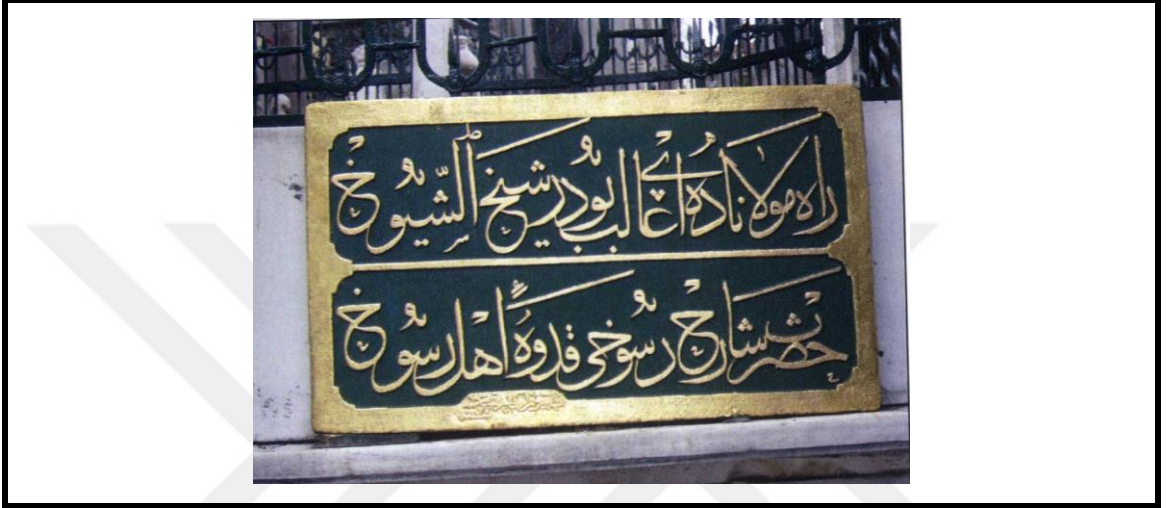 راه مولاناده ای غالب بودر شیخ الشّیوخ
حضرت شارح رسوخی قدوهٔ اهل رسوخ